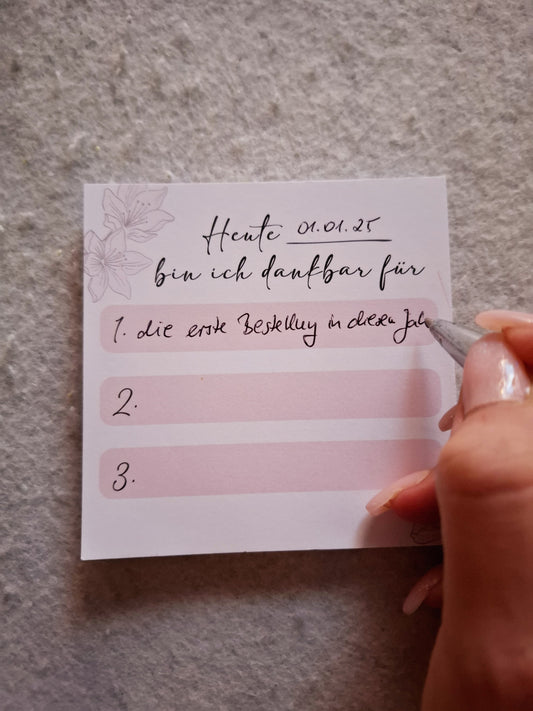 Heute 01.01.25
bin ich dankbar für
1. die erste Bestellung in diesen Jah
2.
3.